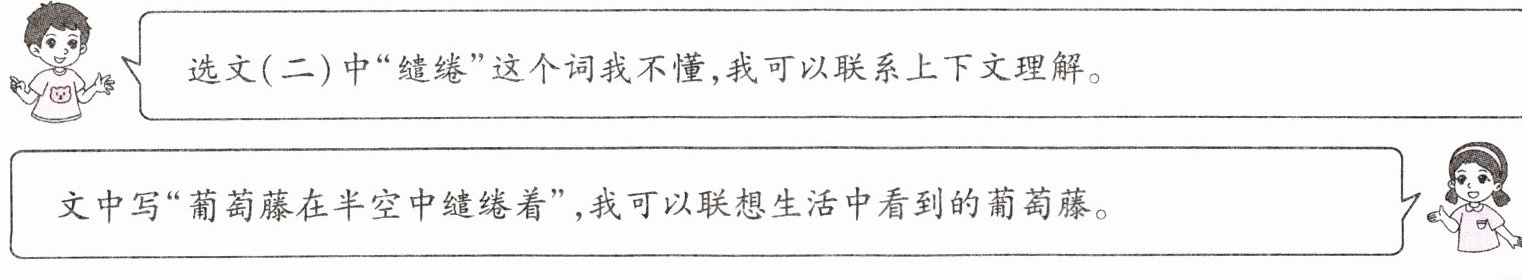 选文(二)中“缱绻”这个词我不懂,我可以联系上下文理解。
文中写“葡萄藤在半空中缱绻着”,我可以联想生活中看到的葡萄藤。